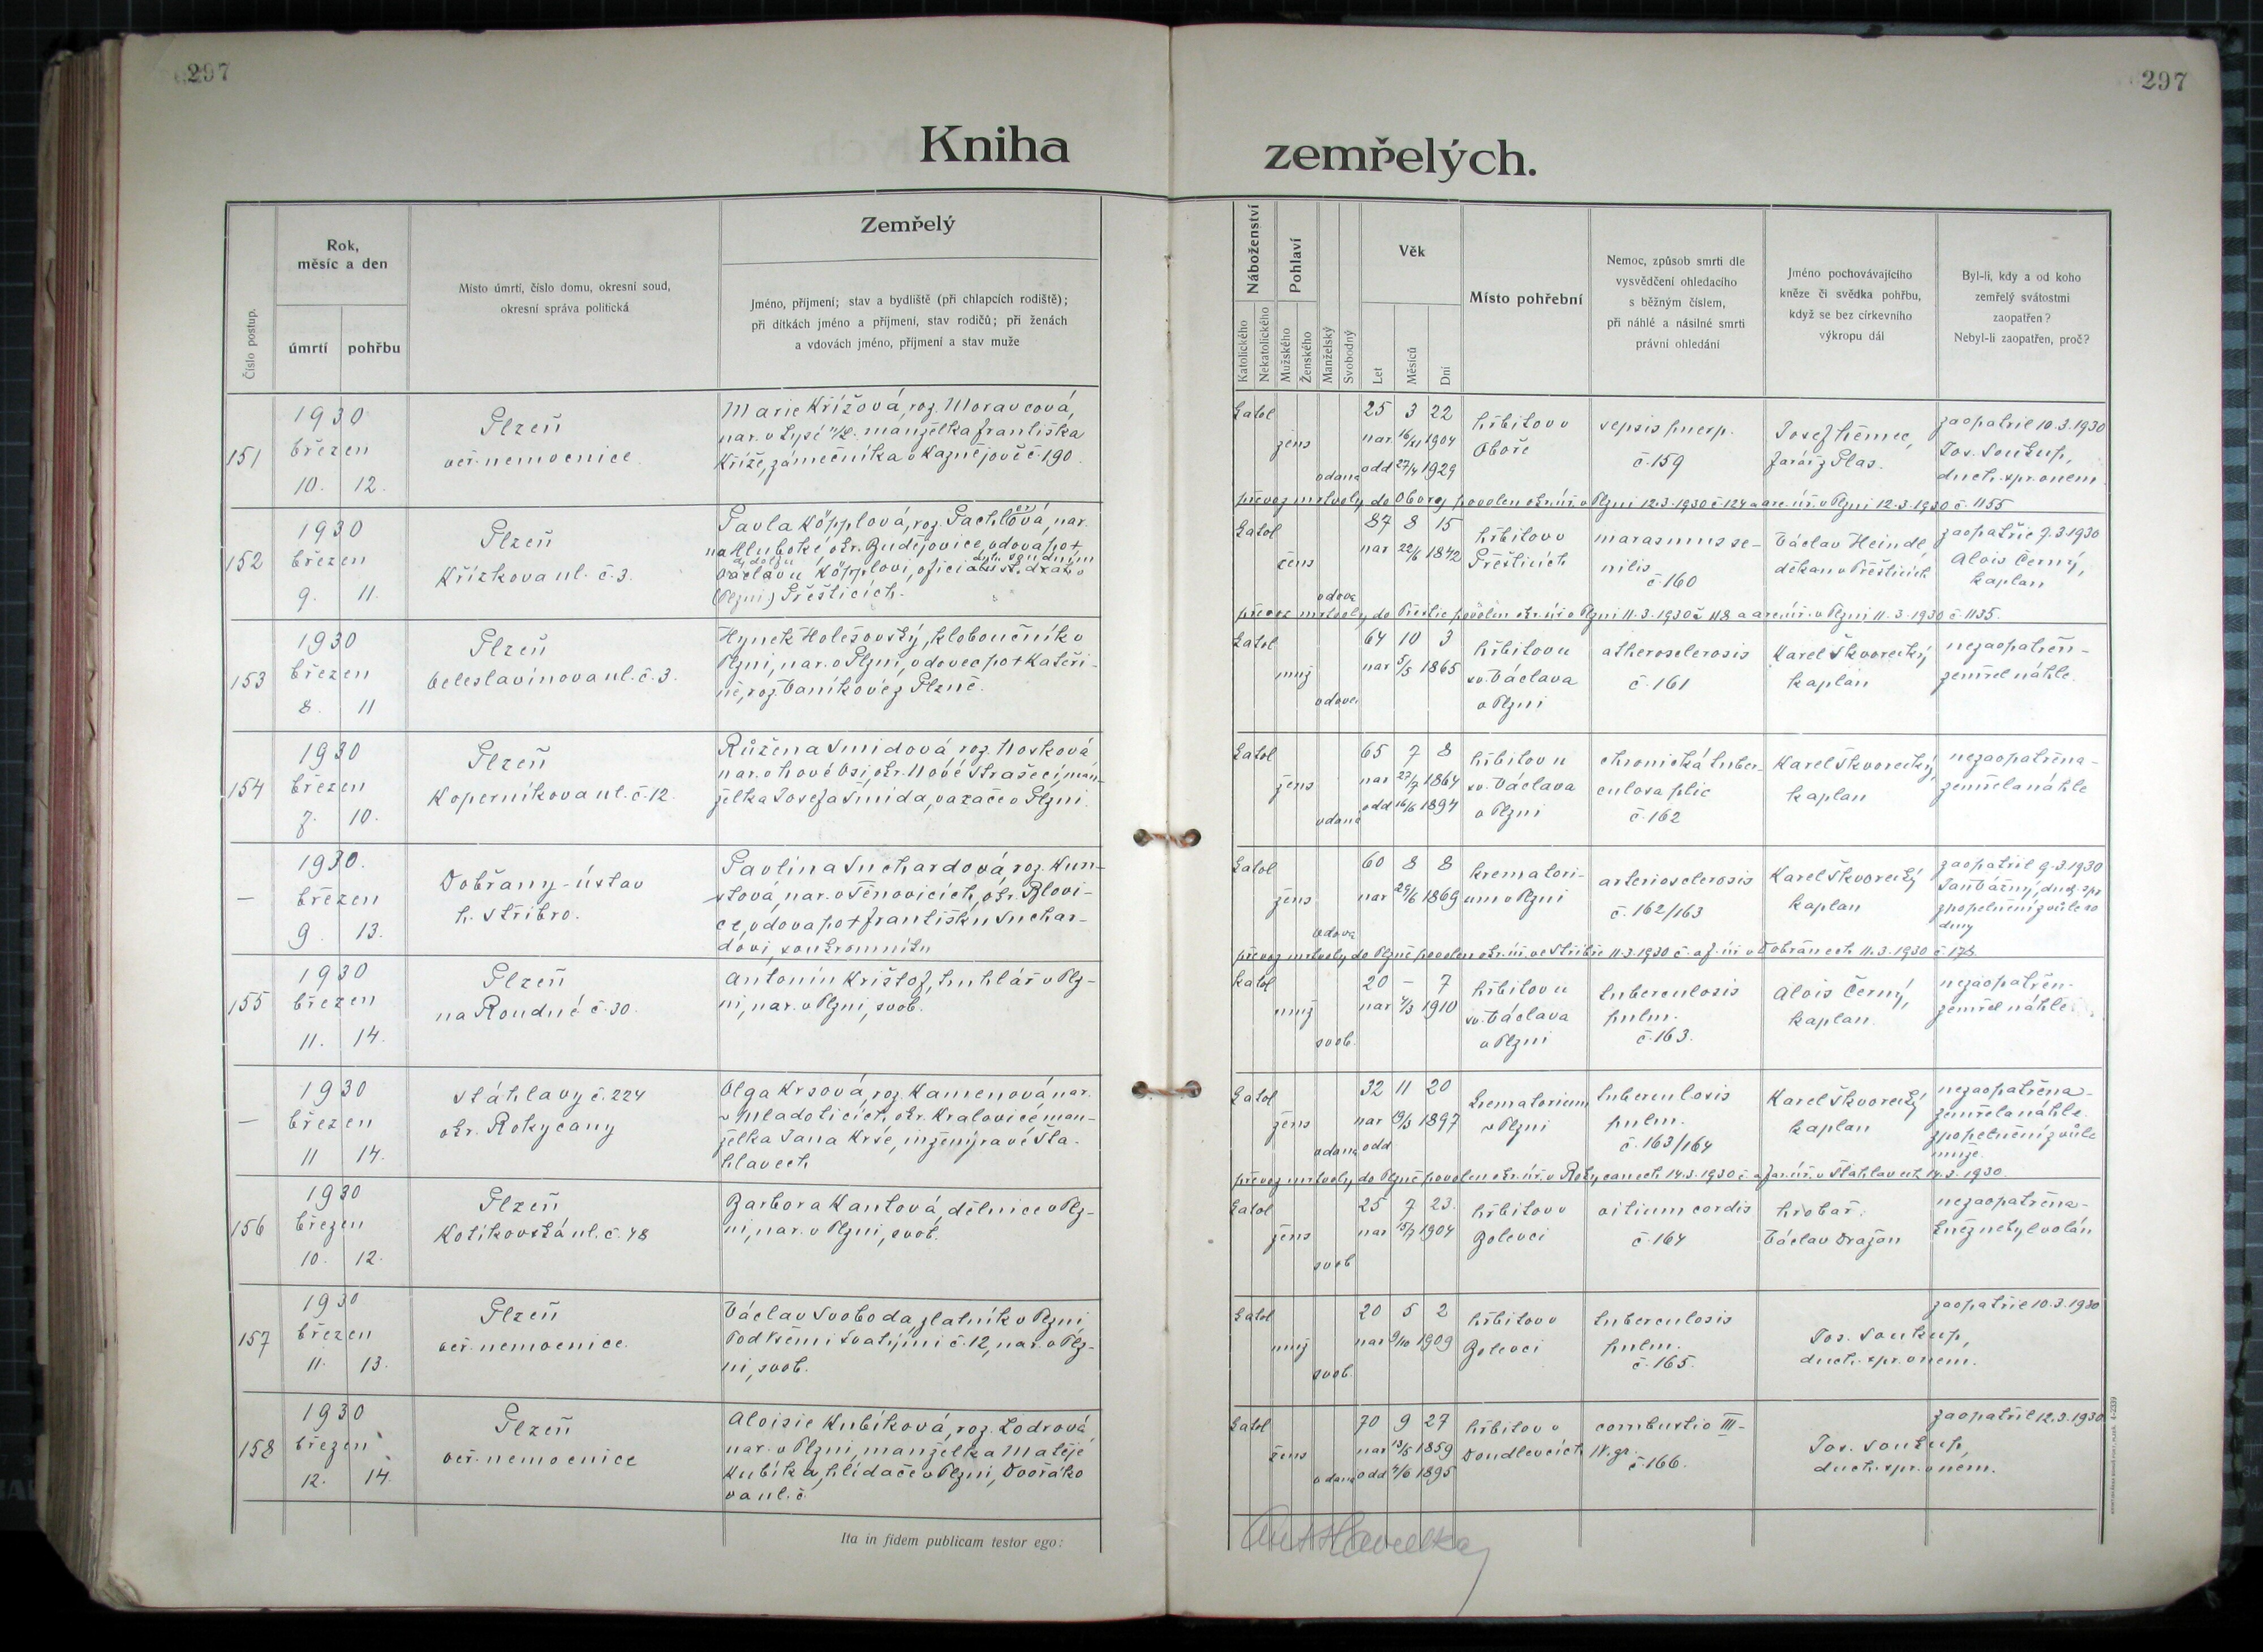 297
297
Kniha
zemřelých.
Číslo postup.
Rok,
měsíc a den
úmrtí
pohřbu
Místo úmrtí, číslo domu, okresní soud,
okresní správa politická
Zemřelý
Jméno, příjmení; stav a bydliště (při chlapcích rodiště);
při dítkách jméno a příjmení, stav rodičů; při ženách
a vdovách jméno, příjmení a stav muže
Náboženství
Katolického
Nekatolického
Pohlaví
Mužského
Ženského
Manželský
Svobodný
Věk
Let
Měsíců
Dní
Místo pohřební
Nemoc, způsob smrti dle
vysvědčení ohledacího
s běžným číslem,
při náhlé a násilné smrti
právní ohledání
Jméno pochovávajícího
kněze či svědka pohřbu,
když se bez církevního
výkropu dál
Byl-li, kdy a od koho
zemřelý svátostmi
zaopatřen?
Nebyl-li zaopatřen, proč?
151
1930
březen
10. 12.
Plzeň
veř. nemocnice
Marie Křížová, roz. Moravcová,
nar. v Lysé n/L. manželka Františka
Kříže, zámečníka v Kaznějově č. 190.
katol
žens
vdaná
25 3 22
nar. 16/XI 1904
odd 27/4 1929
hřbitov v
Oboře
sepsis puerp.
č. 159
Josef Němec,
farář z Plas.
zaopatřil 10.3.1930
Jos. Soukup,
duch. spr. v nem.
převoz mrtvoly do Obory povolen okr. úř. v Plzni 12.3.1930 č. 124 a arc. úř. v Plzni 12.3.1930 č. 1155
152
1930
březen
9. 11.
Plzeň
Křížkova ul. č. 3.
Pavla Köpplová, roz. Pachlová, nar.
na Hluboké, okr. Budějovice, vdova po +
Adolfu
Václavu Köpplovi, oficiálu st. drah v
(Plzni) Přešticích.
katol
žens
vdova
87 8 15
nar 22/6 1842
hřbitov v
Přešticích
marasmus se-
nilis
č. 160
Václav Heindl,
děkan v Přešticích
zaopatřil 9.3.1930
Alois Černý,
kaplan
převoz mrtvoly do Přeštic povolen okr. úř. v Plzni 11.3.1930 č. 118 a arc. úř. v Plzni 11.3.1930 č. 1135.
153
1930
březen
8. 11
Plzeň
Veleslavínova ul. č. 3.
Hynek Holešovský, kloboučník v
Plzni, nar. v Plzni, vdovec po + Kateři-
ně, roz. Vaníkové z Plzně.
katol
muž
vdovec
64 10 3
nar 5/5 1865
hřbitov u
sv. Václava
v Plzni
atherosclerosis
č. 161
Karel Škvorecký
kaplan
nezaopatřen -
zemřel náhle.
154
1930
březen
7. 10.
Plzeň
Koperníkova ul. č. 12.
Růžena Šmídová, roz. Nosková
nar. v Nové Vsi, okr. Nové Strašecí, man-
želka Josefa Šmída, vazače v Plzni.
katol
žens
vdaná
65 7 8
nar 27/7 1864
odd 16/6 1894
hřbitov u
sv. Václava
v Plzni
chronická tuber-
culosa plic
č. 162
Karel Škvorecký,
kaplan
nezaopatřena -
zemřela náhle
—
1930.
březen
9. 13.
Dobřany - ústav
h. Stříbro.
Pavlína Suchardová, roz. Kun-
stová, nar. v Štěnovicích, okr. Blovi-
ce, vdova po + Františku Suchar-
dovi, soukromníku
katol
žens
vdova
60 8 8
nar 29/6 1869
krematori-
um v Plzni
arteriosclerosis
č. 162/163
Karel Škvorecký
kaplan
zaopatřil 9.3.1930
zpopelnění z vůle ro
diny
převoz mrtvoly do Plzně povolen okr. úř. ve Stříbře 11.3.1930 č. a f. úř. v Dobřanech 11.3.1930 č. 178.
155
1930
březen
11. 14.
Plzeň
na Roudné č. 30.
Antonín Krištof, truhlář v Plz-
ni, nar. v Plzni, svob.
katol
muž
svob.
20 - 7
nar 4/3 1910
hřbitov u
sv. Václava
v Plzni
tuberculosis
pulm.
č. 163.
Alois Černý,
kaplan.
nezaopatřen -
zemřel náhle.
—
1930
březen
11 14.
Šťáhlavy č. 224
okr. Rokycany
Olga Krsová, roz. Kamenová nar.
v Mladoticích, okr. Kralovice, man-
želka Jana Krse, inženýra ve Šťa-
hlavech
katol
žens
vdaná
32 11 20
nar 19/3 1897
odd
krematorium
v Plzni
tuberculosis
pulm.
č. 163/164
Karel Škvorecký
kaplan
nezaopatřena -
zemřela náhle.
zpopelnění z vůle
muže.
převoz mrtvoly do Plzně povolen okr. úř. v Rokycanech 14.3.1930 č. a far. úř. v Šťahlavech 14.3.1930.
156
1930
březen
10. 12.
Plzeň
Kotíkovská ul. č. 48
Barbora Kantová, dělnice v Plz-
ni, nar. v Plzni, svob.
katol
žens
svob
25 7 23.
nar 15/7 1904
hřbitov v
Bolevci
vitium cordis
č. 164
hrobař:
Václav Dražan
nezaopatřena -
kněz nebyl volán
157
1930
březen
11. 13.
Plzeň
veř. nemocnice.
Václav Svoboda, zlatník v Plzni
Pod Všemi Svatými č. 12, nar. v Plz-
ni, svob.
katol
muž
svob.
20 5 2
nar 9/10 1909
hřbitov v
Bolevci
tuberculosis
pulm.
č. 165.
zaopatřil 10.3.1930
Jos. Soukup,
duch. spr. v nem.
158
1930
březen
12. 14.
Plzeň
veř. nemocnice
Aloisie Kubíková, roz. Lodrová
nar. v Plzni, manželka Matěje
Kubíka, hlídače v Plzni, Dvořáko
va ul. č.
katol
žens
vdaná
70 9 27
nar 15/5 1859
odd 4/6 1895
hřbitov v
Doudlevcích
combustio III -
IV. gr.
č. 166.
zaopatřil 12.3.1930
Jos. Soukup,
duch. spr. v nem.
Ita in fidem publicam testor ego:
Ant. Havelka